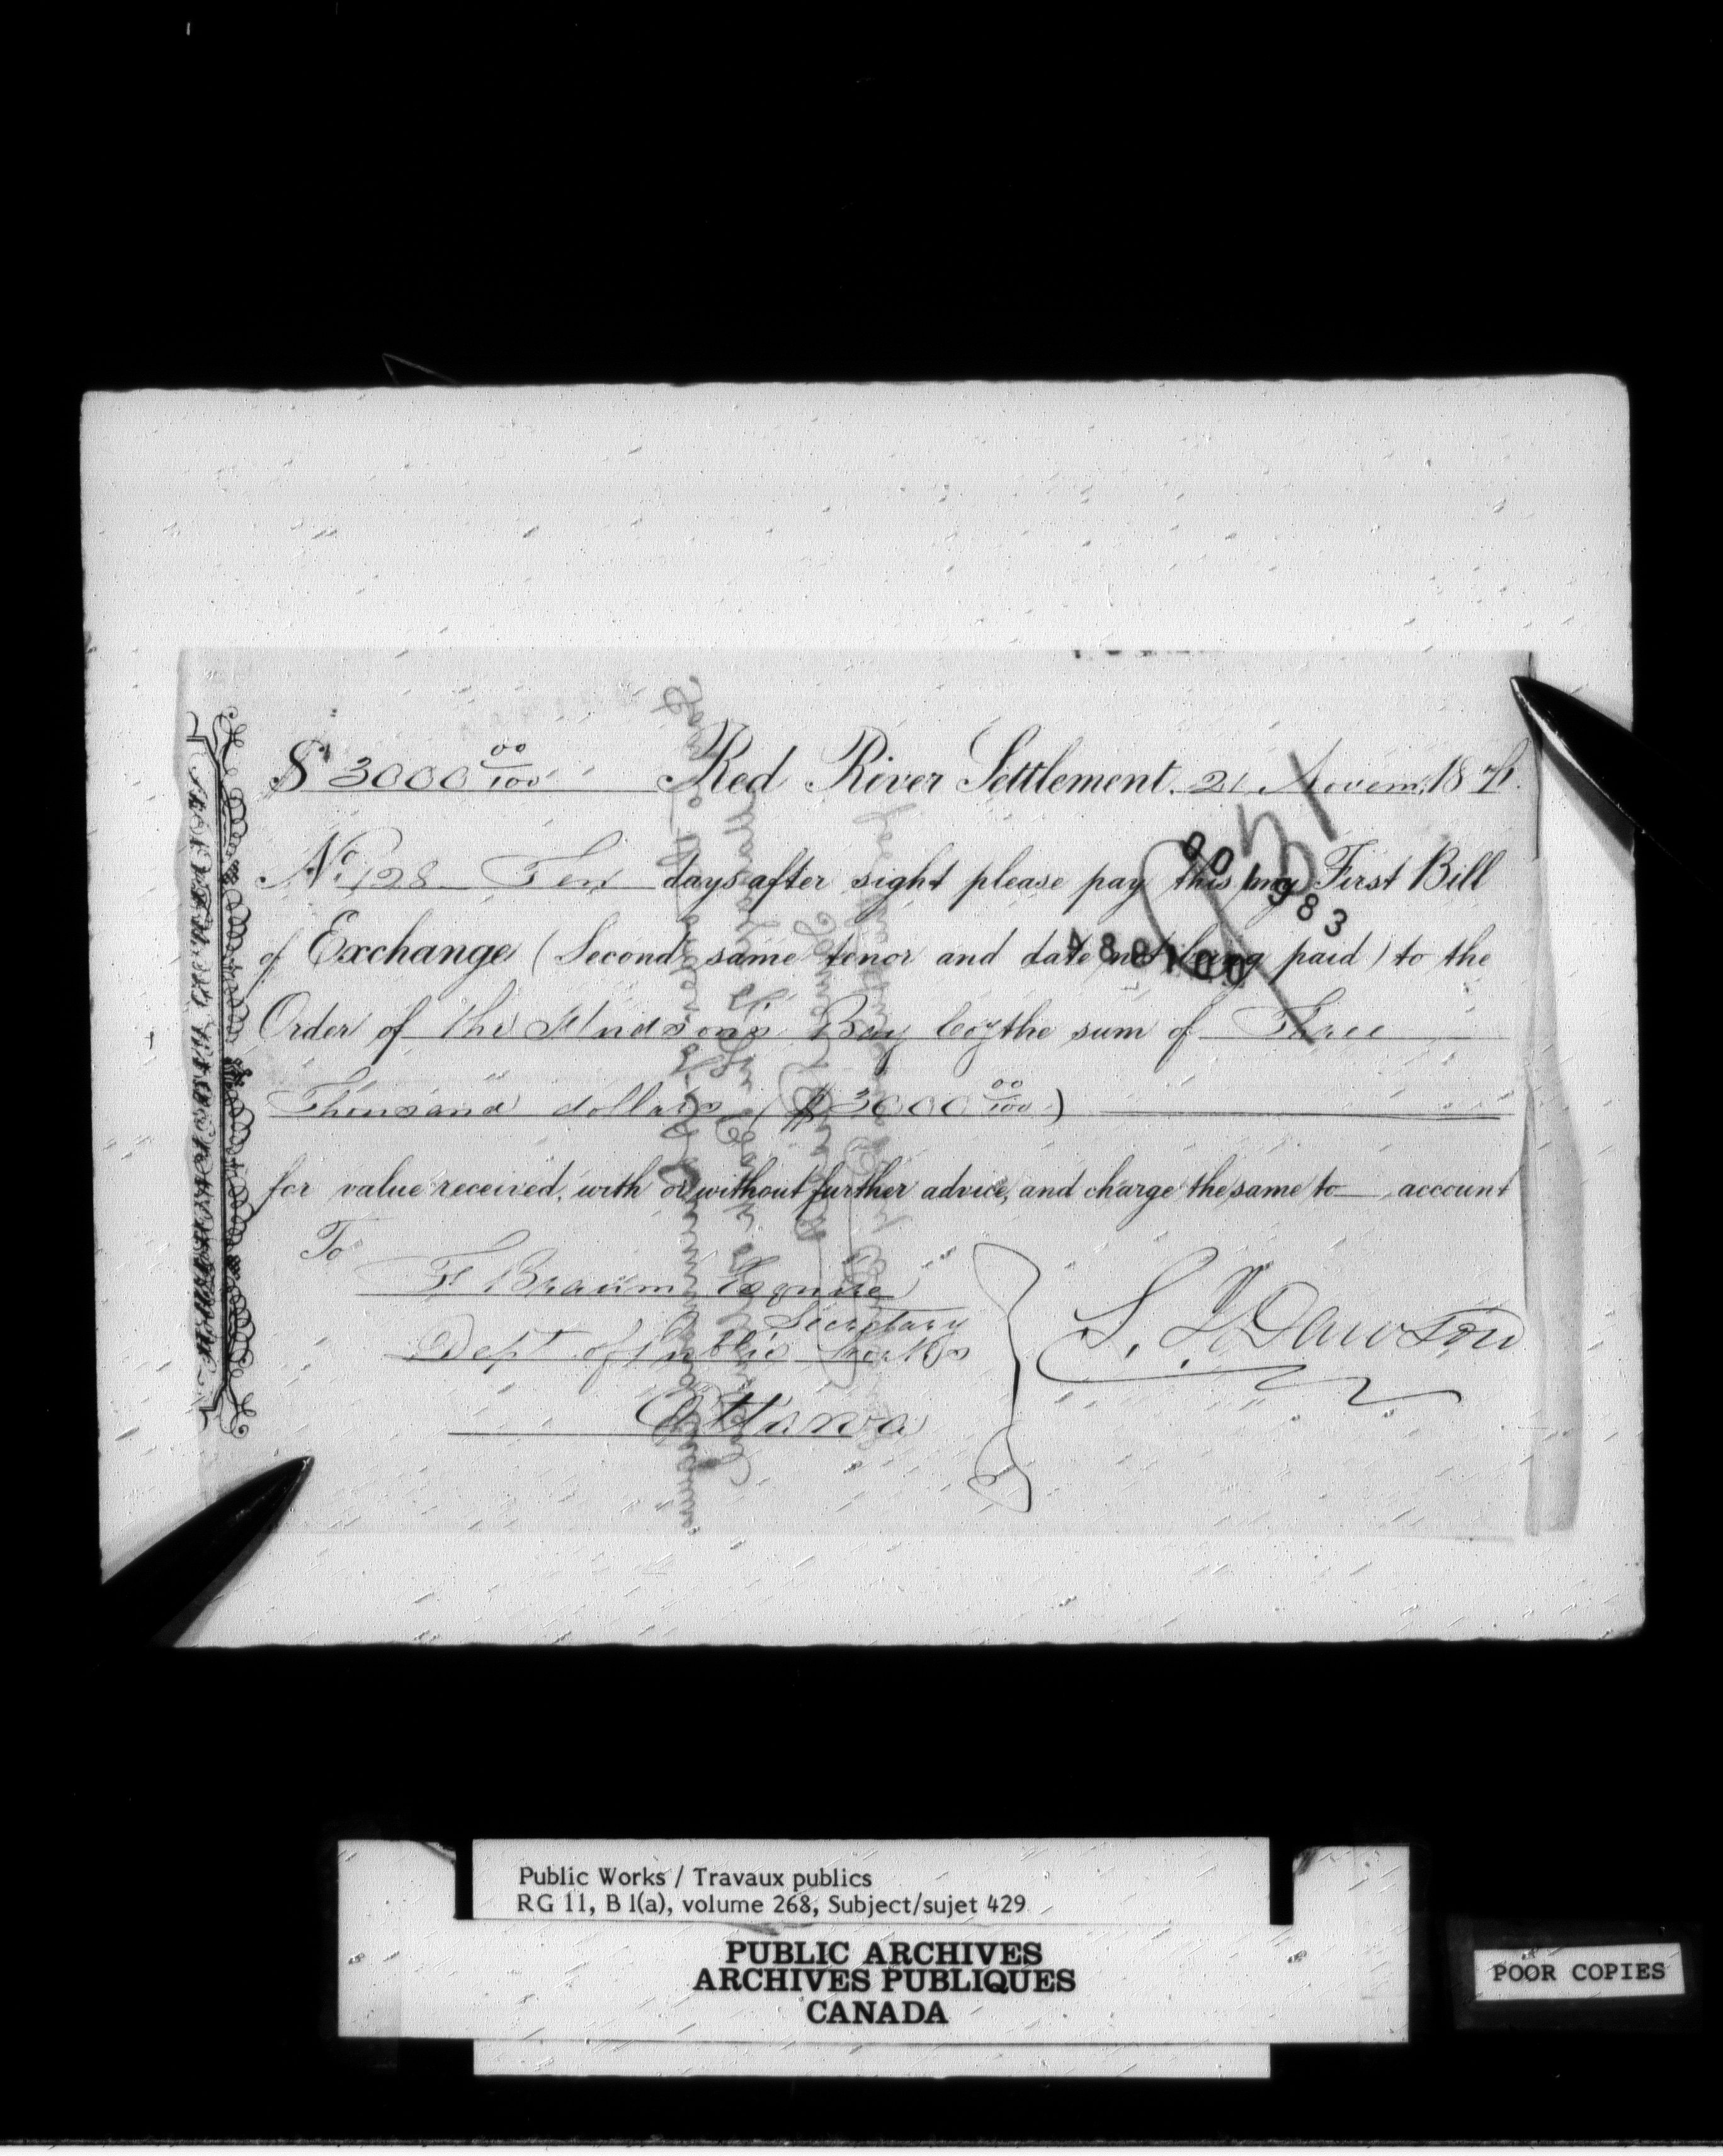 $ 3000 00/100 Red River Settlement, 21 Novem. 1871.
No. 128 Ten days after sight please pay this my First Bill
of Exchange (Second same tenor and date not being paid) to the
Order of The Hudson's Bay Coy the sum of Three
Thousand dollars ($3000 00/100)
for value received, with or without further advice, and charge the same to account
To
F Braun Esquire
Secretary
Dept of Public Works
Ottawa
S. J. Dawson
001983
Public Works / Travaux publics
RG 11, B 1(a), volume 268, Subject/sujet 429
PUBLIC ARCHIVES
ARCHIVES PUBLIQUES
CANADA
POOR COPIES